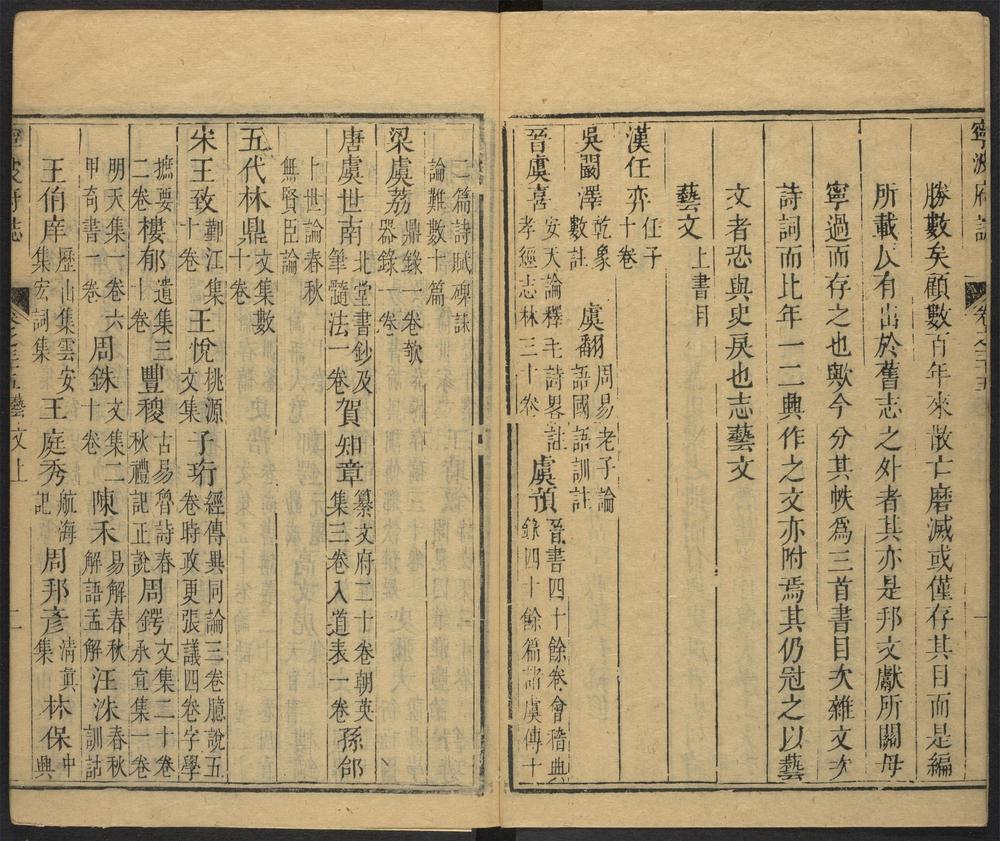 寧波府志
卷之三十五
一
勝數矣顧數百年來散亡磨滅或僅存其目而是編
所載乆有出於舊志之外者其亦是邦文獻所關毋
寧過而存之也歟今分其帙爲三首書目次雜文次
詩詞而比年一二典作之文亦附焉其仍冠之以藝
文者恐與史戾也志藝文
藝文上書目
漢任弈任子十卷
吳闞澤乾象數註 虞翻周易老子論語國語訓註
晉虞喜安天論釋毛詩畧註孝經志林三十卷 虞預晉書四十餘卷會稽典錄四十餘篇諸虞傳十
二篇詩賦碑誄論難數十篇
梁虞荔鼎錄一卷欹器錄一卷
唐虞世南北堂書鈔及筆髓法一卷賀知章纂文府三十卷朝英集三卷入道表一卷孫郃
上世論春秋無賢臣論
五代林鼎文集數十卷
宋王致鄞江集十卷 王悅桃源文集 子珩經傳異同論三卷臆說五卷時政更張議四卷字學
摭要二卷樓郁遺集三十卷豐稷古易魯詩春秋禮記正說周鍔文集二十卷承宣集一卷
明天集一卷六甲奇書一卷 周銖文集二十卷陳禾易解春秋解語孟解汪洙春秋訓詁
王伯庠歷山集雲安集宏詞集王庭秀航海記 周邦彥清真集 林保中典
寧波府志
卷之三十五藝文上
二